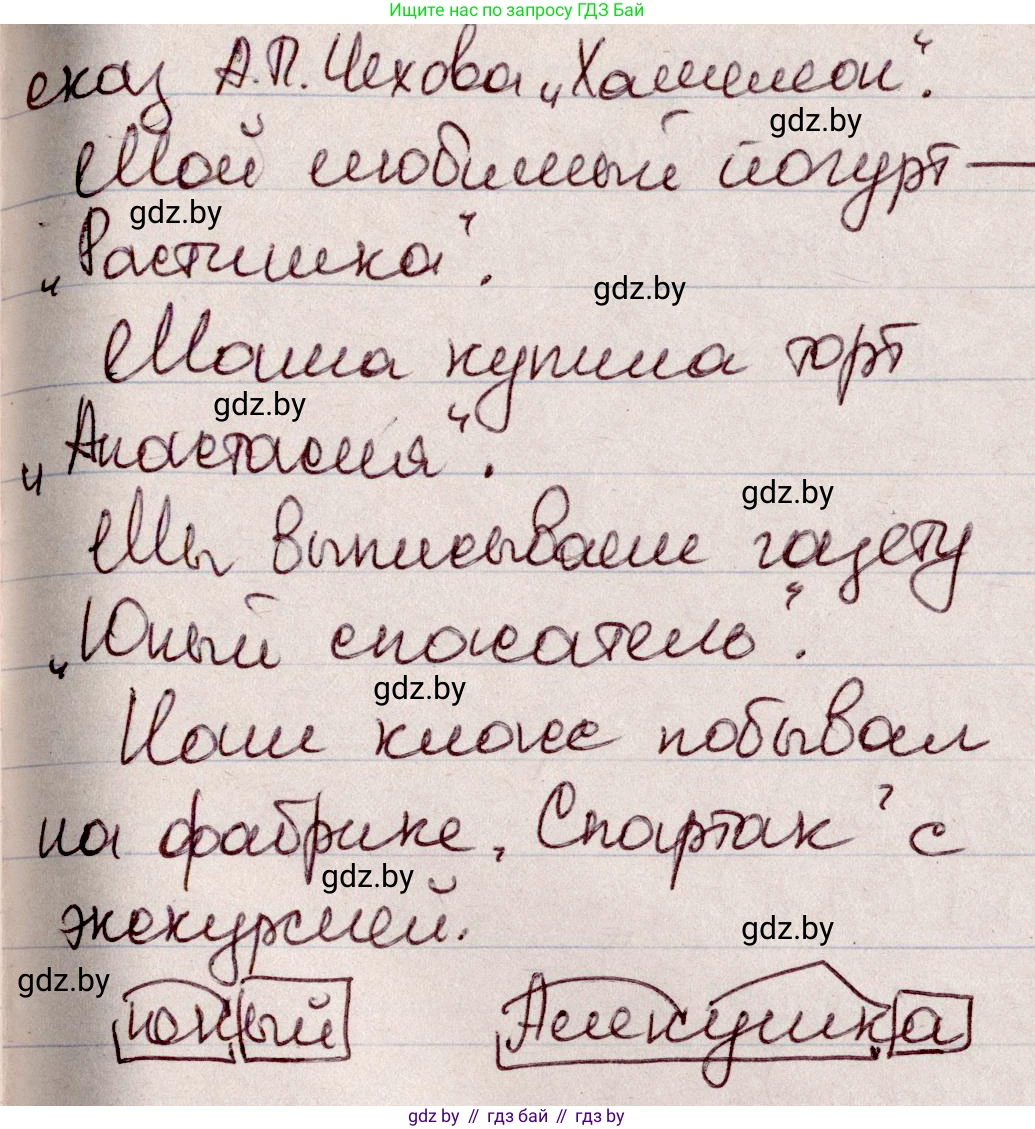 Ищите нас по запросу ГДЗ Бай
сказ А.П. Чехова „Хамелеон“.
gdz.by
Мой любимый йогурт —
gdz.by
„Растишка“.
gdz.by
Маша купила торт
gdz.by
„Анастасия“.
gdz.by
Мы выписываем газету
„Юный спасатель“.
gdz.by
Наш класс побывал
на фабрике „Спартак“ с
gdz.by
экскурсией.
gdz.by
gdz.by
юный Аленушка
gdz.by // гдз бай // гдз by